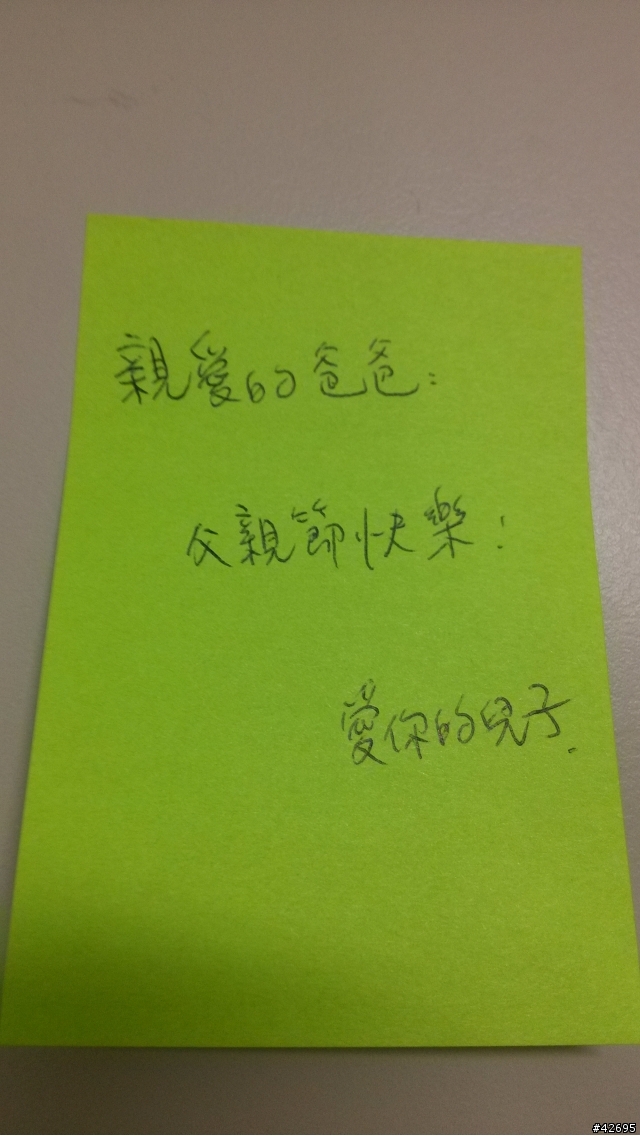 親愛的爸爸:
父親節快樂!
愛你的兒子.
#42695